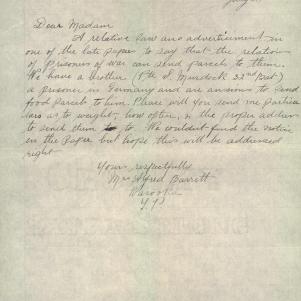 Dear Madam
A relative saw an advertisement in
one of the late papers to say that the relations
of prisoners of war can send parcels to them.
We have a brother (Pte D. Murdock 32nd Batt)
a prisoner in Germany and are anxious to send
food parcels to him Please will you send me particu
lars as to weight, how often, & the proper address
to send them to. We couldn't find the notice
in the Paper but hope this will be addressed
right
Yours respectfully
Mrs Alfred Barrett
Warooka
Y.P.